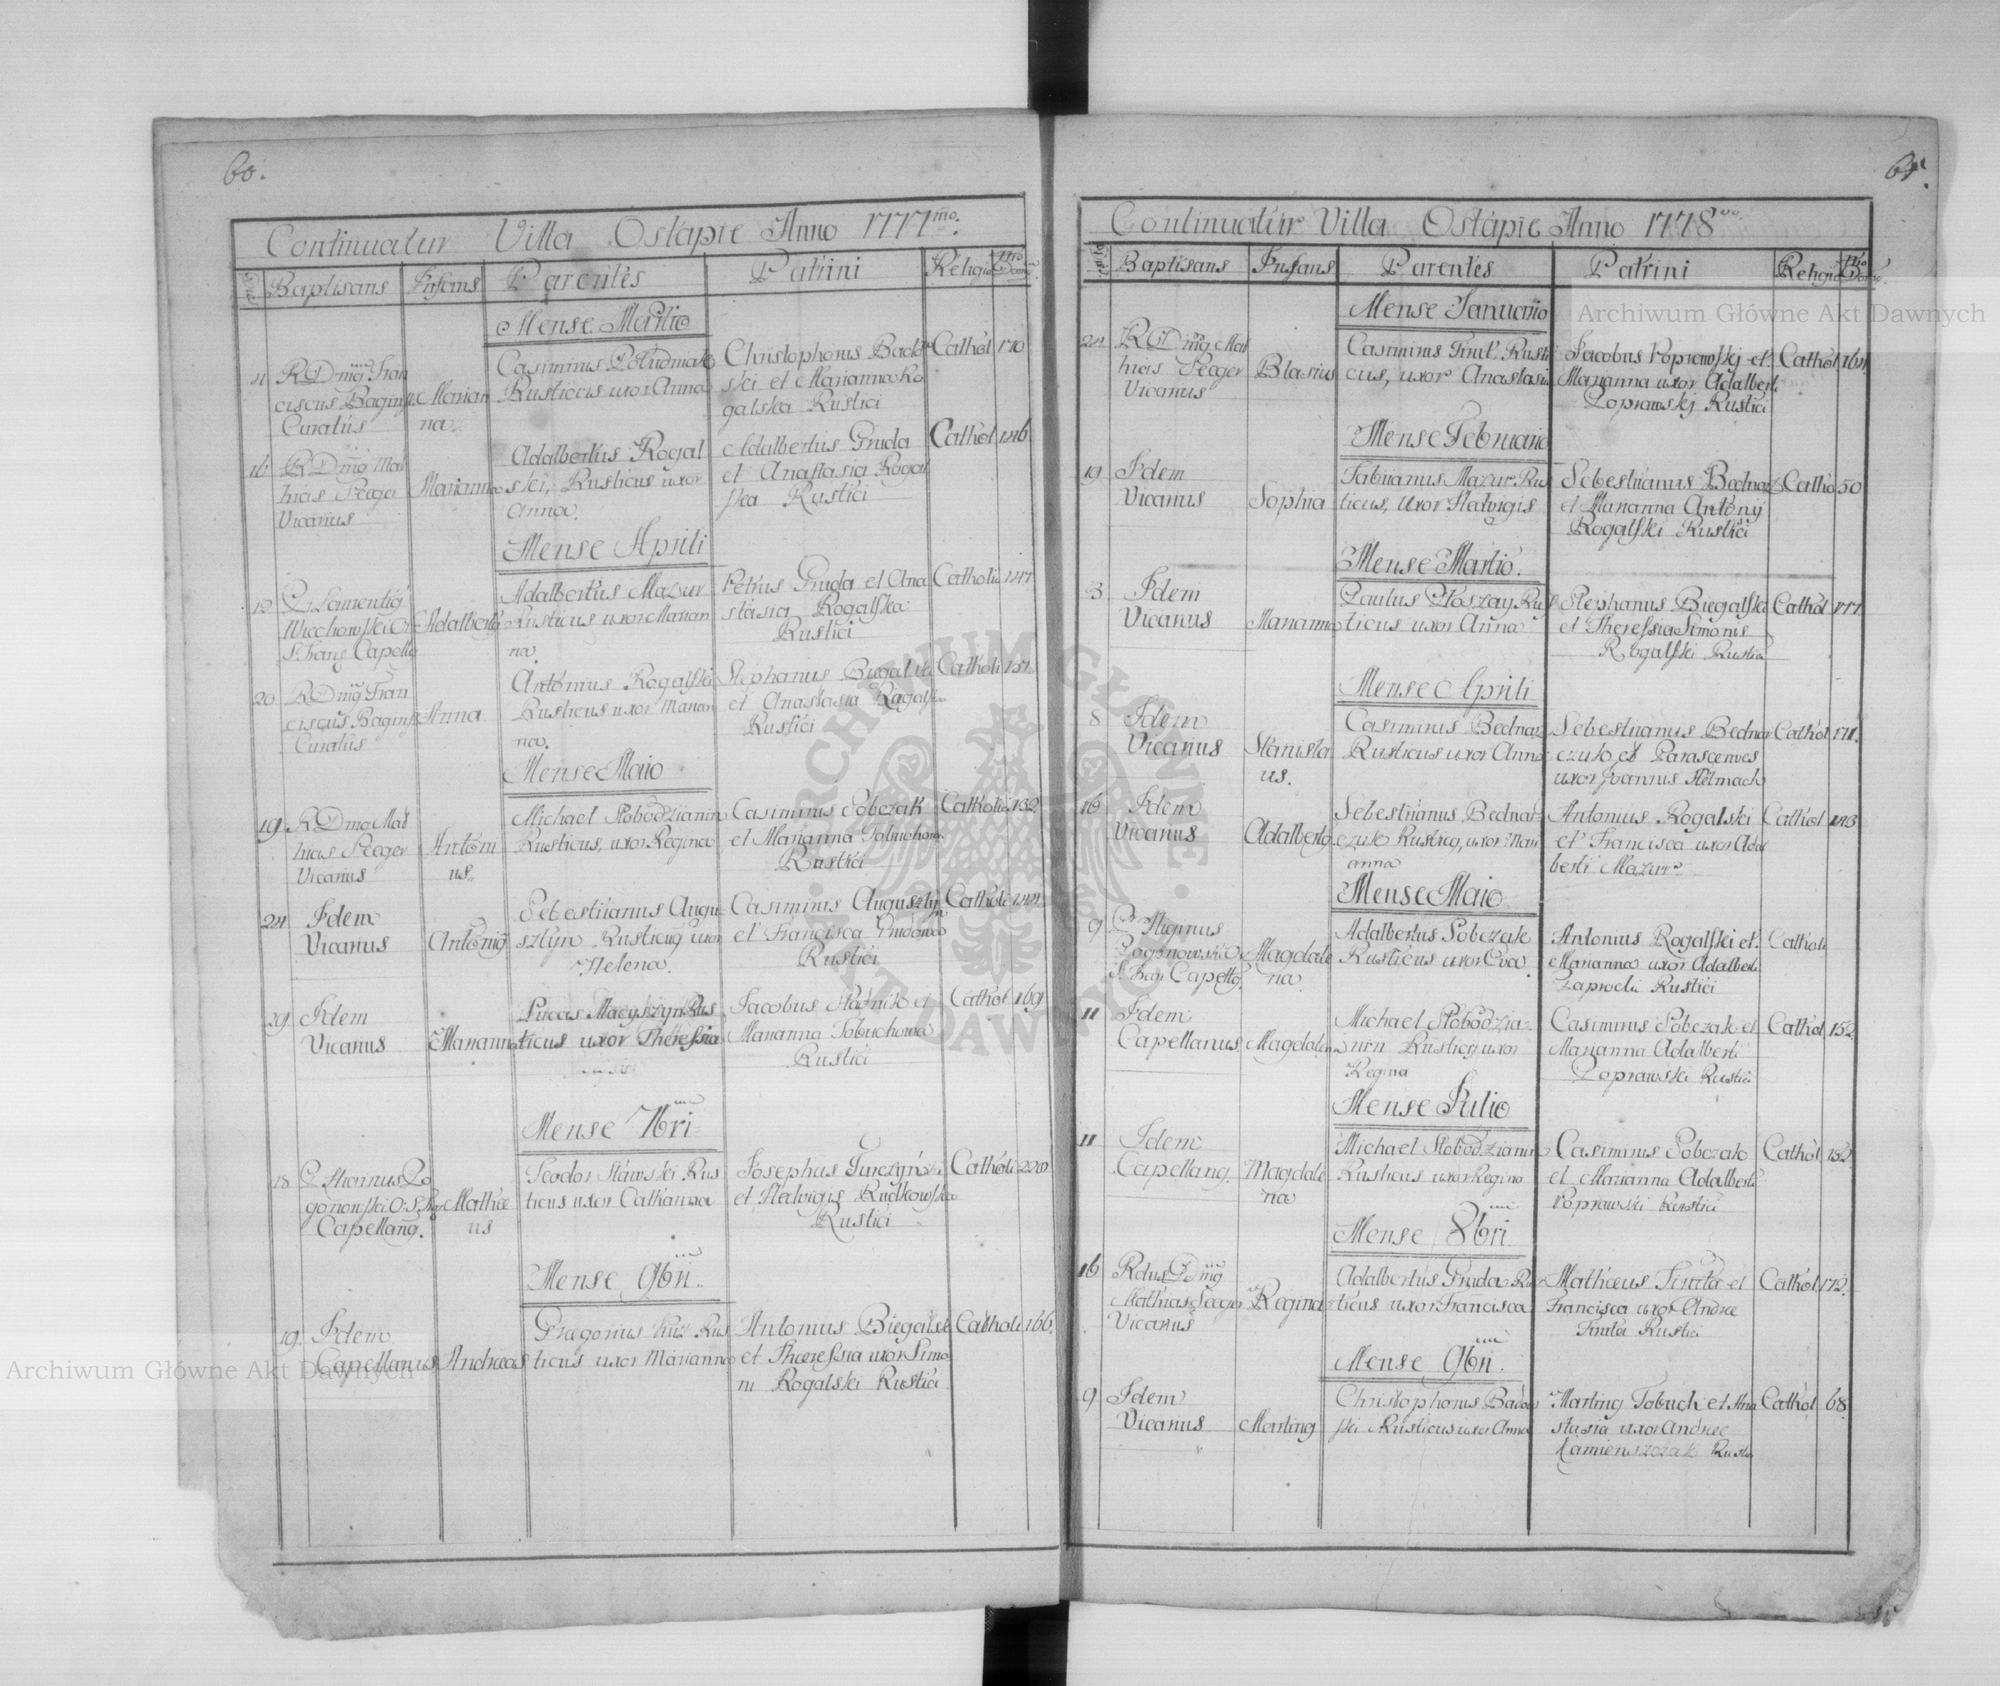 60.
Continuatur Villa Ostapie Anno 1777mo.
Baptisans Infans Parentes Patrini Religio Nro Domus
Mense Martio
11 RDnus Fran
ciscus
Curatus
Marian
na
Casimirus Południak
Rusticus uxor Anna
Christophorus Bado
ski et Marianna Ro
galska Rustici
Cathol 170
16 RDng Mat
hias Seeger
Vicarius
Marianna
Adalbertus Rogal
ski, Rusticus uxor
Anna.
Adalbertus Gruda
et Anastasia Rogal
ska Rustici
Cathol 146
Mense Aprili
12 P. Laurentig
S. Franc Capella
Adalbertg
Adalbertus Mazur
Rusticus uxor Marian
na.
Petrus Gruda et Ana
stasia Rogalska
Rustici
Catholi 147
20 RDng Fran
ciscus
Curatus
Anna
Antonius Rogalski
Rusticus uxor Marian
na.
Stephanus Biegalski
et Anastasia Rogalska
Rustici
Catholi
Mense Maio
19 RDnus Mat
hias Seeger
Vicarius
Antoni
us.
Michael Słobodzianin
Rusticus, uxor Regina
Casimirus Sobczak
et Marianna Tobuchowa
Rustici
Catholi 152
24 Idem
Vicarius
Antonig
Sebestiianus Augu
sztyn Rusticug uxor
Helena.
Casimirus Augusztyn
et Francisca Grudowa
Rustici
Catholi 144
29 Idem
Vicarius
Marianna
Lucas Macyszyn Rus
ticus uxor Theressia
Jacobus Hładnik et
Marianna Tobuchowa
Rustici
Cathol 169
Mense 7bri
18 P. Higinus Po
gonowski O. S.
Capellang.
Mathæ
us
Teodor Sławski Rus
ticus uxor Catharina
Josephus Turczyński
et Hedvigis Rudkowska
Rustici
Catholi 220
Mense 9bri
19. Idem
Capellanus
Andreas
Gregorius Rus
ticus uxor Marianna
Antonius Biegalski
et Theeressia uxor Simo
ni Rogalski Rustici
Catholi 166
61.
Continuatur Villa Ostapie Anno 1778vo.
Baptisans Infans Parentes Patrini Religio Nro Domus
Mense Januario
24 RDng Mat
hias Seeger
Vicarius
Blasius
Casimirus Finit Rusti
cus, uxor Anastasia
Jacobus Poprawskj et
Marianna uxor Adalberti
Poprawskj Rustici
Cathol 164.
Mense Februario
19 Idem
Vicarius
Sophia
Fabiianus Mazur Rus
ticus, Uxor Hedvigis
Sebestiianus Bednarz
et Marianna Antony
Rogalski Rustici
Catho 50
Mense Martio.
3 Idem
Vicarius
Marianna
Paulus Płoszay Rus
ticus uxor Anna
Stephanus Biegalski
et Theressia Simonis
Rogalski Rustici
Cathol 177.
Mense Aprili
8 Idem
Vicarius
Stanisla
us.
Casimirus Bednarz
Rusticus uxor Anna
Sebestiianus Bednar
czuk et Parasceves
uxor Joannis Stelmach
Cathol 171.
16 Idem
Vicarius
Adalbertg
Sebestiianus Bednar
czuk Rusticg, uxor Mari
anna
Antonius Rogalski
et Francisca uxor Adal
berti Mazur
Cathol 143
Mense Maio
9 P. Higinus
Pogonowski O
S. Capellg.
Magdale
na.
Adalbertus Sobczak
Rusticus uxor Eva
Antonius Rogalski et
Marianna uxor Adalberti
Rustici
Catholi
11 Idem
Capellanus
Magdalen
Michael Słobodzia
nin Rusticg uxor
Regina
Casimirus Sobczak et
Marianna Adalberti
Poprawski Rustici
Cathol 152
Mense Julio
11 Idem
Capellang.
Magdale
na
Michael Słobodzianin
Rusticus uxor Regina
Casimirus Sobczak
et Marianna Adalberti
Poprawski Rustici
Cathol 152.
Mense 8bri
16 Rdus Dng
Mathias Seeger
Vicarius
Regina
Adalbertus Gruda Rus
ticus uxor Francisca
Mathæus Finita et
Francisca uxor Andreæ
Finita Rustici
Cathol 172.
Mense 9bri.
9 Idem
Vicarius
Marting
Christophorus Badow
ski Rusticus uxor Anna
Marting Tobuch et Ana
stasia uxor Andreæ
Kamienszczak Rustici
Cathol 68
Archiwum Główne Akt Dawnych
Archiwum Główne Akt Dawnych
ARCHIWUM GŁÓWNE AKT DAWNYCH